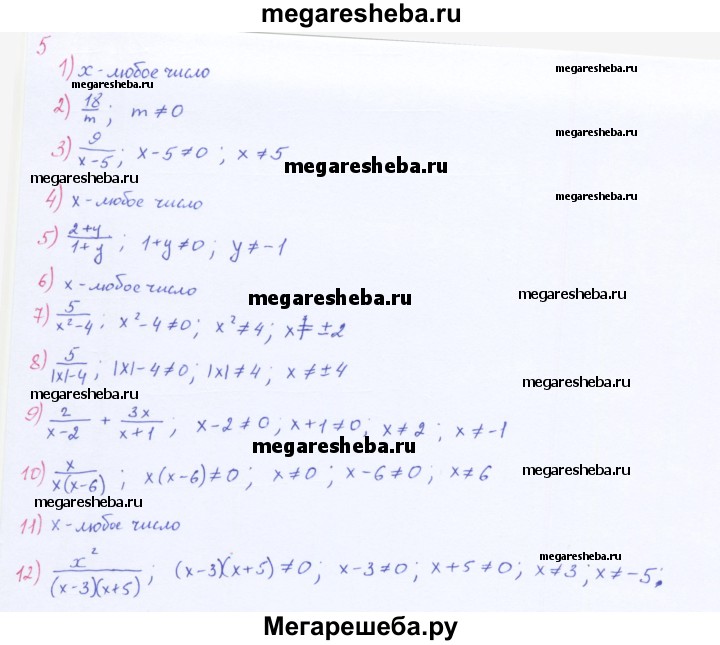 megaresheba.ru
5
1) x - любое число
megaresheba.ru
megaresheba.ru
2) 18/m ; m ≠ 0
megaresheba.ru
3) 9/(x-5) ; x-5≠0 ; x≠5
megaresheba.ru
megaresheba.ru
4) x - любое число
megaresheba.ru
5) (2+y)/(1+y) ; 1+y≠0 ; y≠-1
6) x - любое число
megaresheba.ru
megaresheba.ru
7) 5/(x²-4) ; x²-4≠0 ; x²≠4 ; x≠±2
8) 5/(|x|-4) ; |x|-4≠0 ; |x|≠4 ; x≠±4
megaresheba.ru
megaresheba.ru
9) 2/(x-2) + 3x/(x+1) ; x-2≠0 ; x+1≠0 ; x≠2 ; x≠-1
megaresheba.ru
10) x/(x(x-6)) ; x(x-6)≠0 ; x≠0 ; x-6≠0 ; x≠6
megaresheba.ru
megaresheba.ru
11) x - любое число
megaresheba.ru
12) x²/((x-3)(x+5)) ; (x-3)(x+5)≠0 ; x-3≠0 ; x+5≠0 ; x≠3 ; x≠-5 ;
Мегарешеба.ру